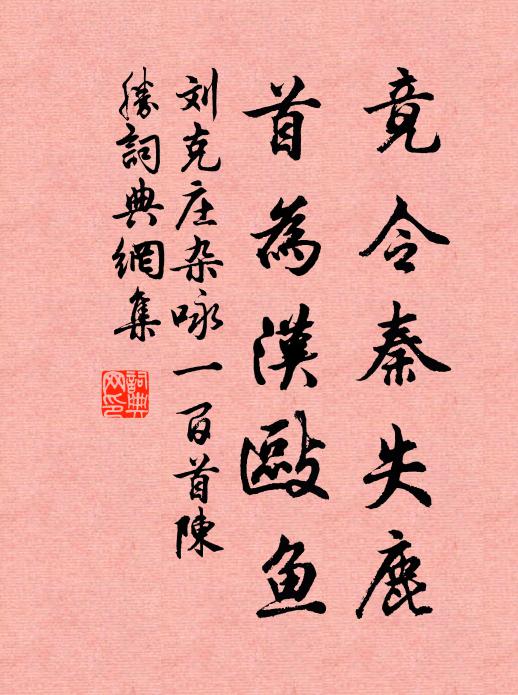 竟令秦失鹿
首為漢敺魚
刘克庄杂咏一百首陳
勝詞典網集
詞典
网印